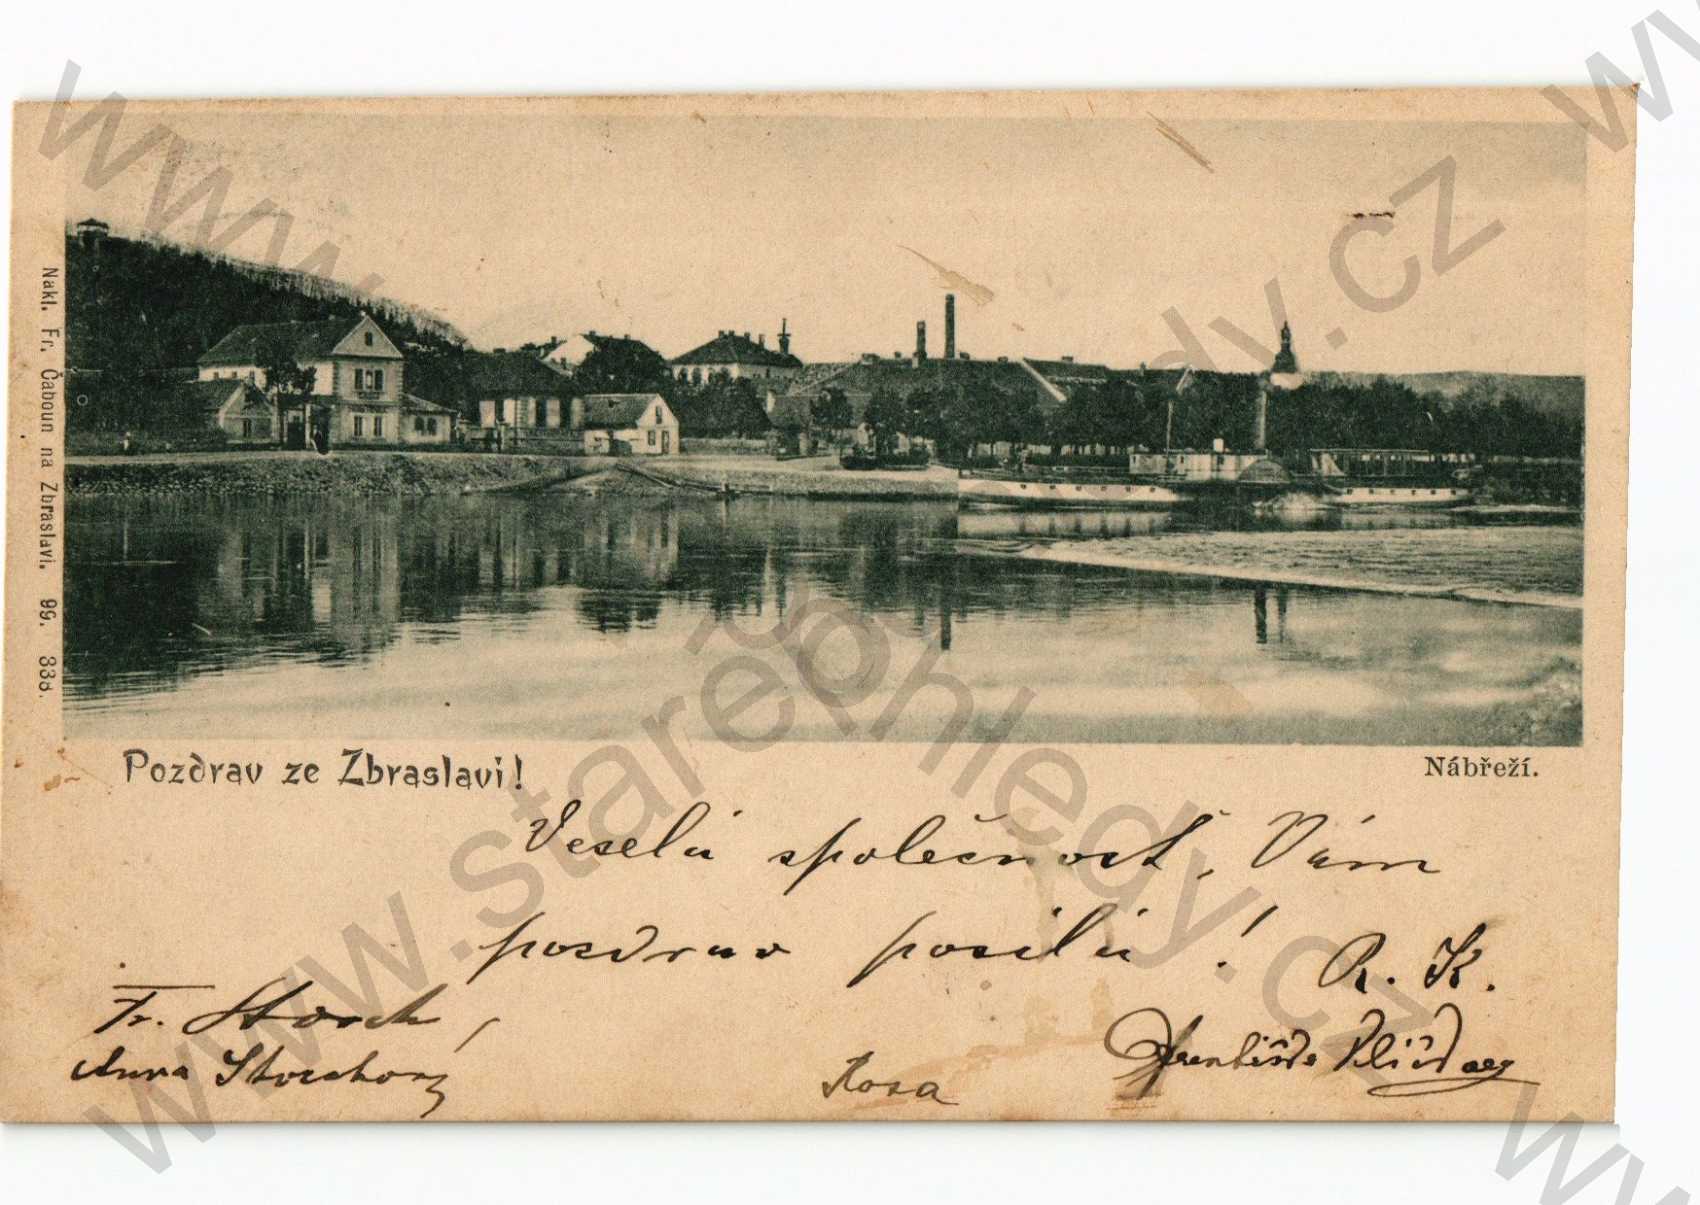 Nakl. Fr. Čaboun na Zbraslavi. 99. 338.
Pozdrav ze Zbraslavi!
Nábřeží.
Veselá společnost, Vám
pozdrav posílá!
R. K.
Fr. Storch,
Anna Storchová
Rosa
František
www.starepohledy.cz
www.starepohledy.cz